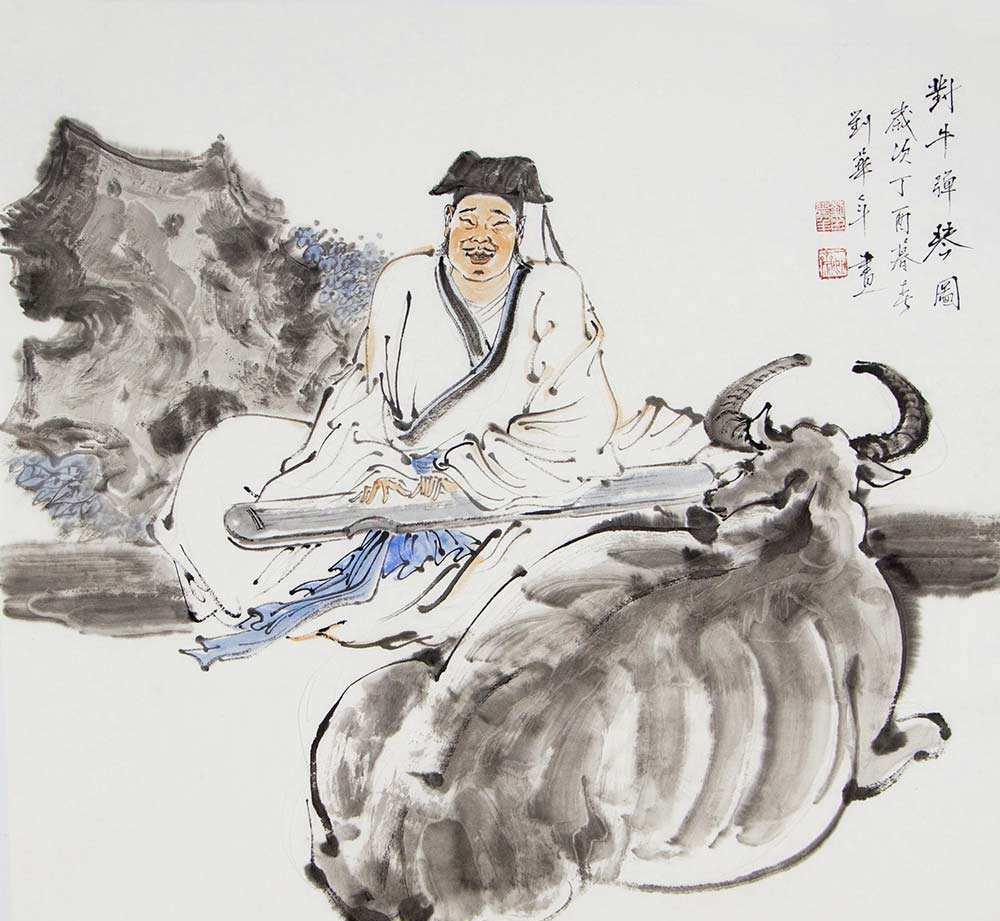 對牛彈琴圖
歲次丁酉暮春
劉華 畫